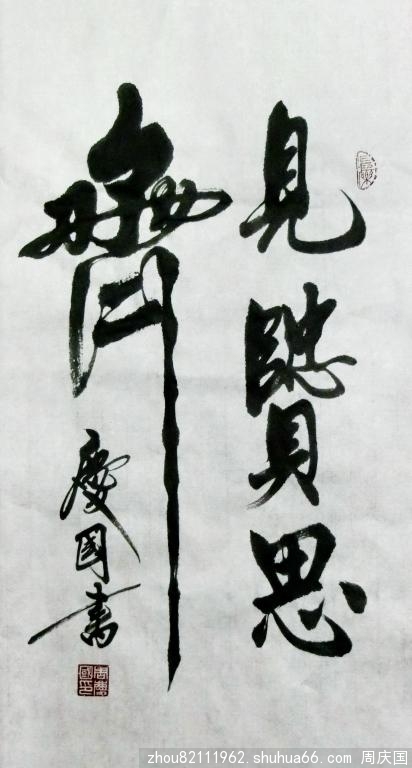 見賢思
齊
慶國書
zhou82111962.shuhua66.com 周庆国